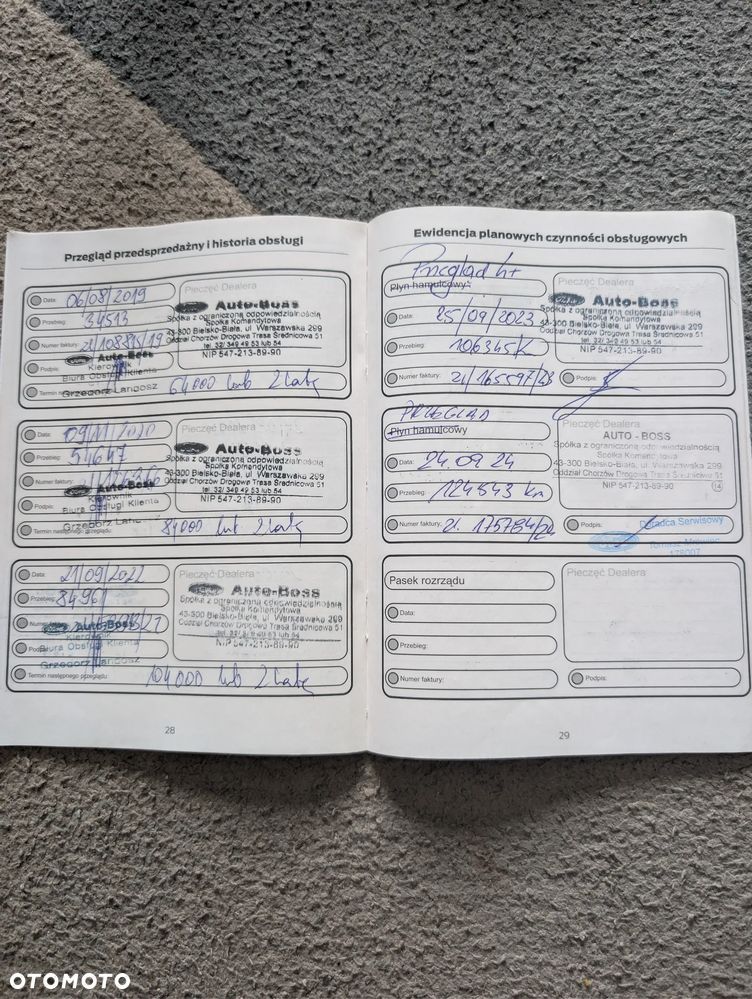 Przegląd przedsprzedażny i historia obsługi
Data: 06/08/2019
Przebieg: 34513
Numer faktury:
Podpis:
Auto-Boss
Kierownik
Biura Obsługi Klienta
Grzegorz Langosz
64000 lub 2 lata
Pieczęć Dealera
Ford Auto-Boss
Spółka z ograniczoną odpowiedzialnością
Spółka Komandytowa
43-300 Bielsko-Biała, ul. Warszawska 299
Oddział Chorzów Drogowa Trasa Średnicowa 51
tel. 32/ 349 49 53 lub 54
NIP 547-213-89-90
Data:
Przebieg: 54647
Numer faktury:
Podpis:
Auto-Boss
Kierownik
Biura Obsługi Klienta
Termin następnego przeglądu: 84000 lub 2 lata
Pieczęć Dealera
Ford Auto-Boss
Spółka z ograniczoną odpowiedzialnością
Spółka Komandytowa
43-300 Bielsko-Biała, ul. Warszawska 299
Oddział Chorzów Drogowa Trasa Średnicowa 51
tel. 32/ 349 49 53 lub 54
NIP 547-213-89-90
Data: 21/09/2022
Przebieg: 84961
Auto-Boss
Kierownik
Biura Obsługi Klienta
Grzegorz Langosz
Termin następnego przeglądu: 104000 lub 2 lata
Pieczęć Dealera
Ford Auto-Boss
Spółka z ograniczoną odpowiedzialnością
Spółka Komandytowa
43-300 Bielsko-Biała, ul. Warszawska 299
Oddział Chorzów Drogowa Trasa Średnicowa 51
tel. 32/ 349 49 53 lub 54
NIP 547-213-89-90
28
Ewidencja planowych czynności obsługowych
Przegląd
Płyn hamulcowy
Data: 25/09/2023
Przebieg: 106345
Numer faktury: 21/165597/23
Pieczęć Dealera
Ford Auto-Boss
Spółka z ograniczoną odpowiedzialnością
Spółka Komandytowa
43-300 Bielsko-Biała, ul. Warszawska 299
Oddział Chorzów Drogowa Trasa Średnicowa 51
tel. 32/ 349 49 53 lub 54
NIP 547-213-89-90
Podpis:
PRZEGLĄD
Płyn hamulcowy
Data: 24.09.24
Przebieg: 124543 km
Numer faktury: 21. 175784/24
Pieczęć Dealera
AUTO - BOSS
Spółka z ograniczoną odpowiedzialnością
Spółka Komandytowa
43-300 Bielsko-Biała, ul. Warszawska 299
Oddział Chorzów Drogowa Trasa Średnicowa 51
NIP 547-213-89-90
14
Podpis:
Doradca Serwisowy
178007
Pasek rozrządu
Data:
Przebieg:
Numer faktury:
Pieczęć Dealera
Podpis:
29
OTOMOTO